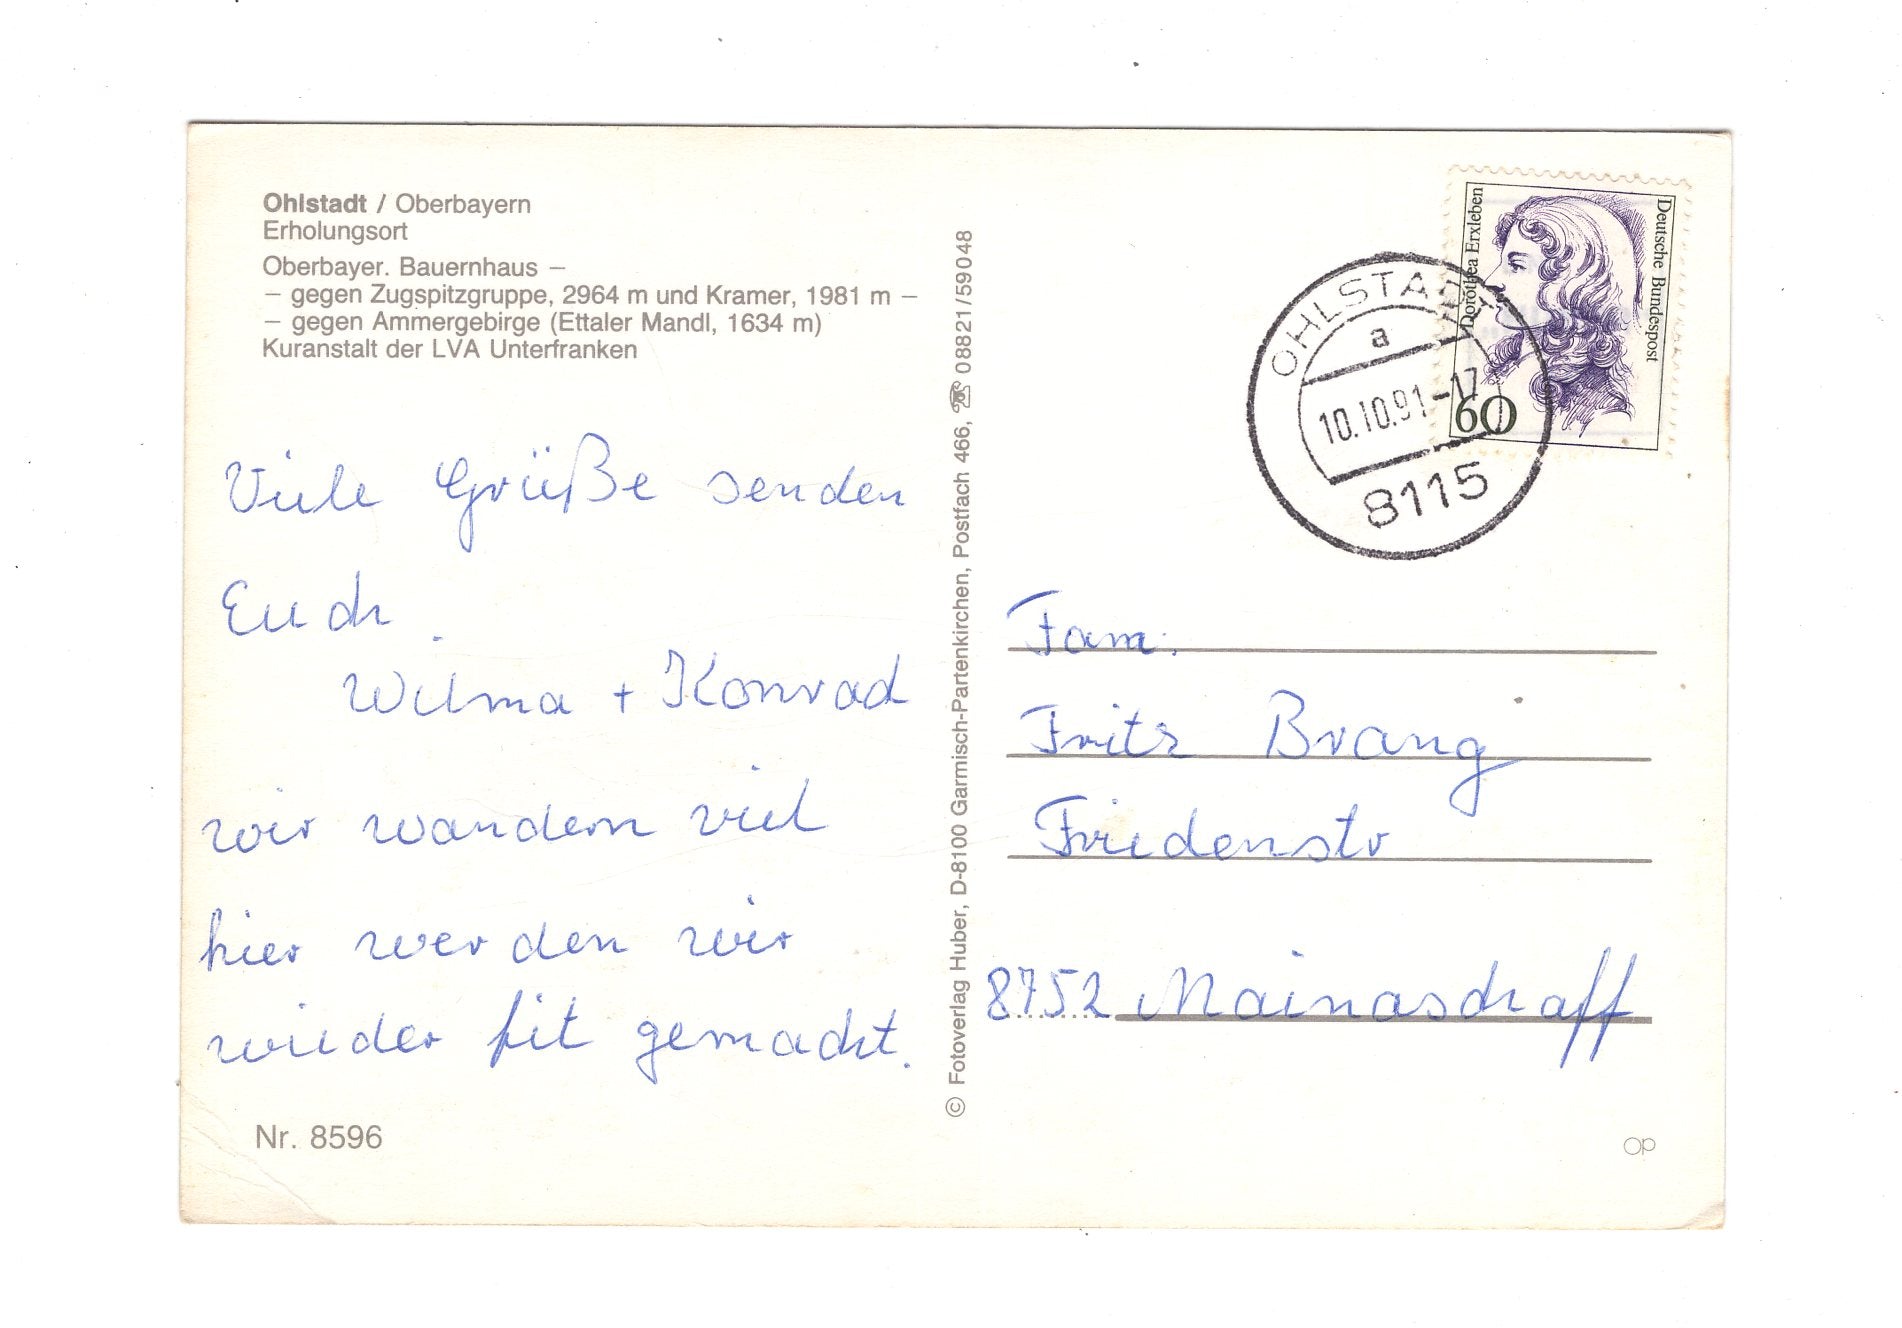 Ohlstadt / Oberbayern
Erholungsort
Oberbayer. Bauernhaus –
– gegen Zugspitzgruppe, 2964 m und Kramer, 1981 m –
– gegen Ammergebirge (Ettaler Mandl, 1634 m)
Kuranstalt der LVA Unterfranken
Viele Grüße senden
Euch
Wilma + Konrad
wir wandern viel
hier werden wir
wieder fit gemacht.
Nr. 8596
© Fotoverlag Huber, D-8100 Garmisch-Partenkirchen, Postfach 466, ☎ 08821/59048
Dorothea Erxleben
Deutsche Bundespost
60
OHLSTADT
a
10.10.91-17
8115
Fam.
Fritz Brang
Friedenstr
8752 Mainaschaff
op